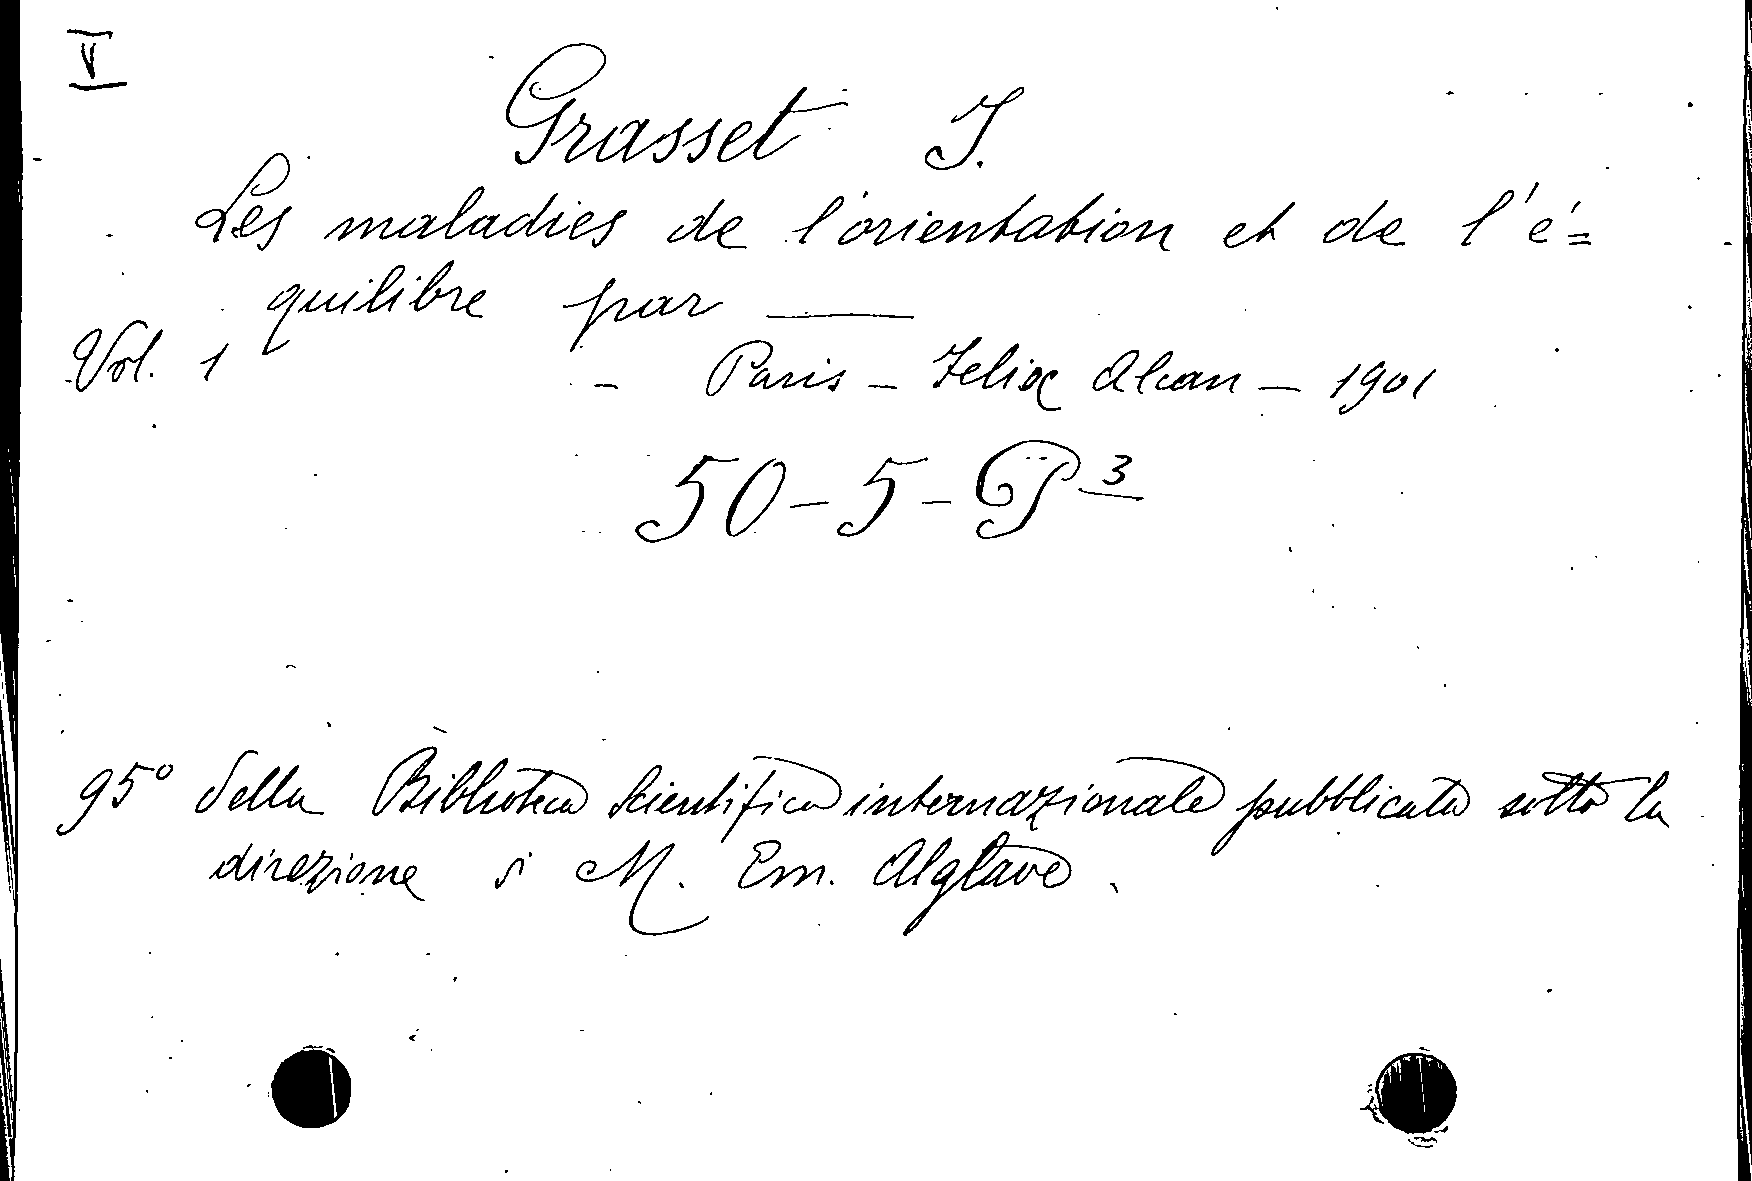 V
Grasset J.
Les maladies de l'orientation et de l'é=
quilibre par ——
Vol. 1 - Paris - Felix Alcan - 1901
50-5-P 3
95° della Biblioteca scientifica internazionale pubblicata sotto la
direzione di M. Em. Alglave.